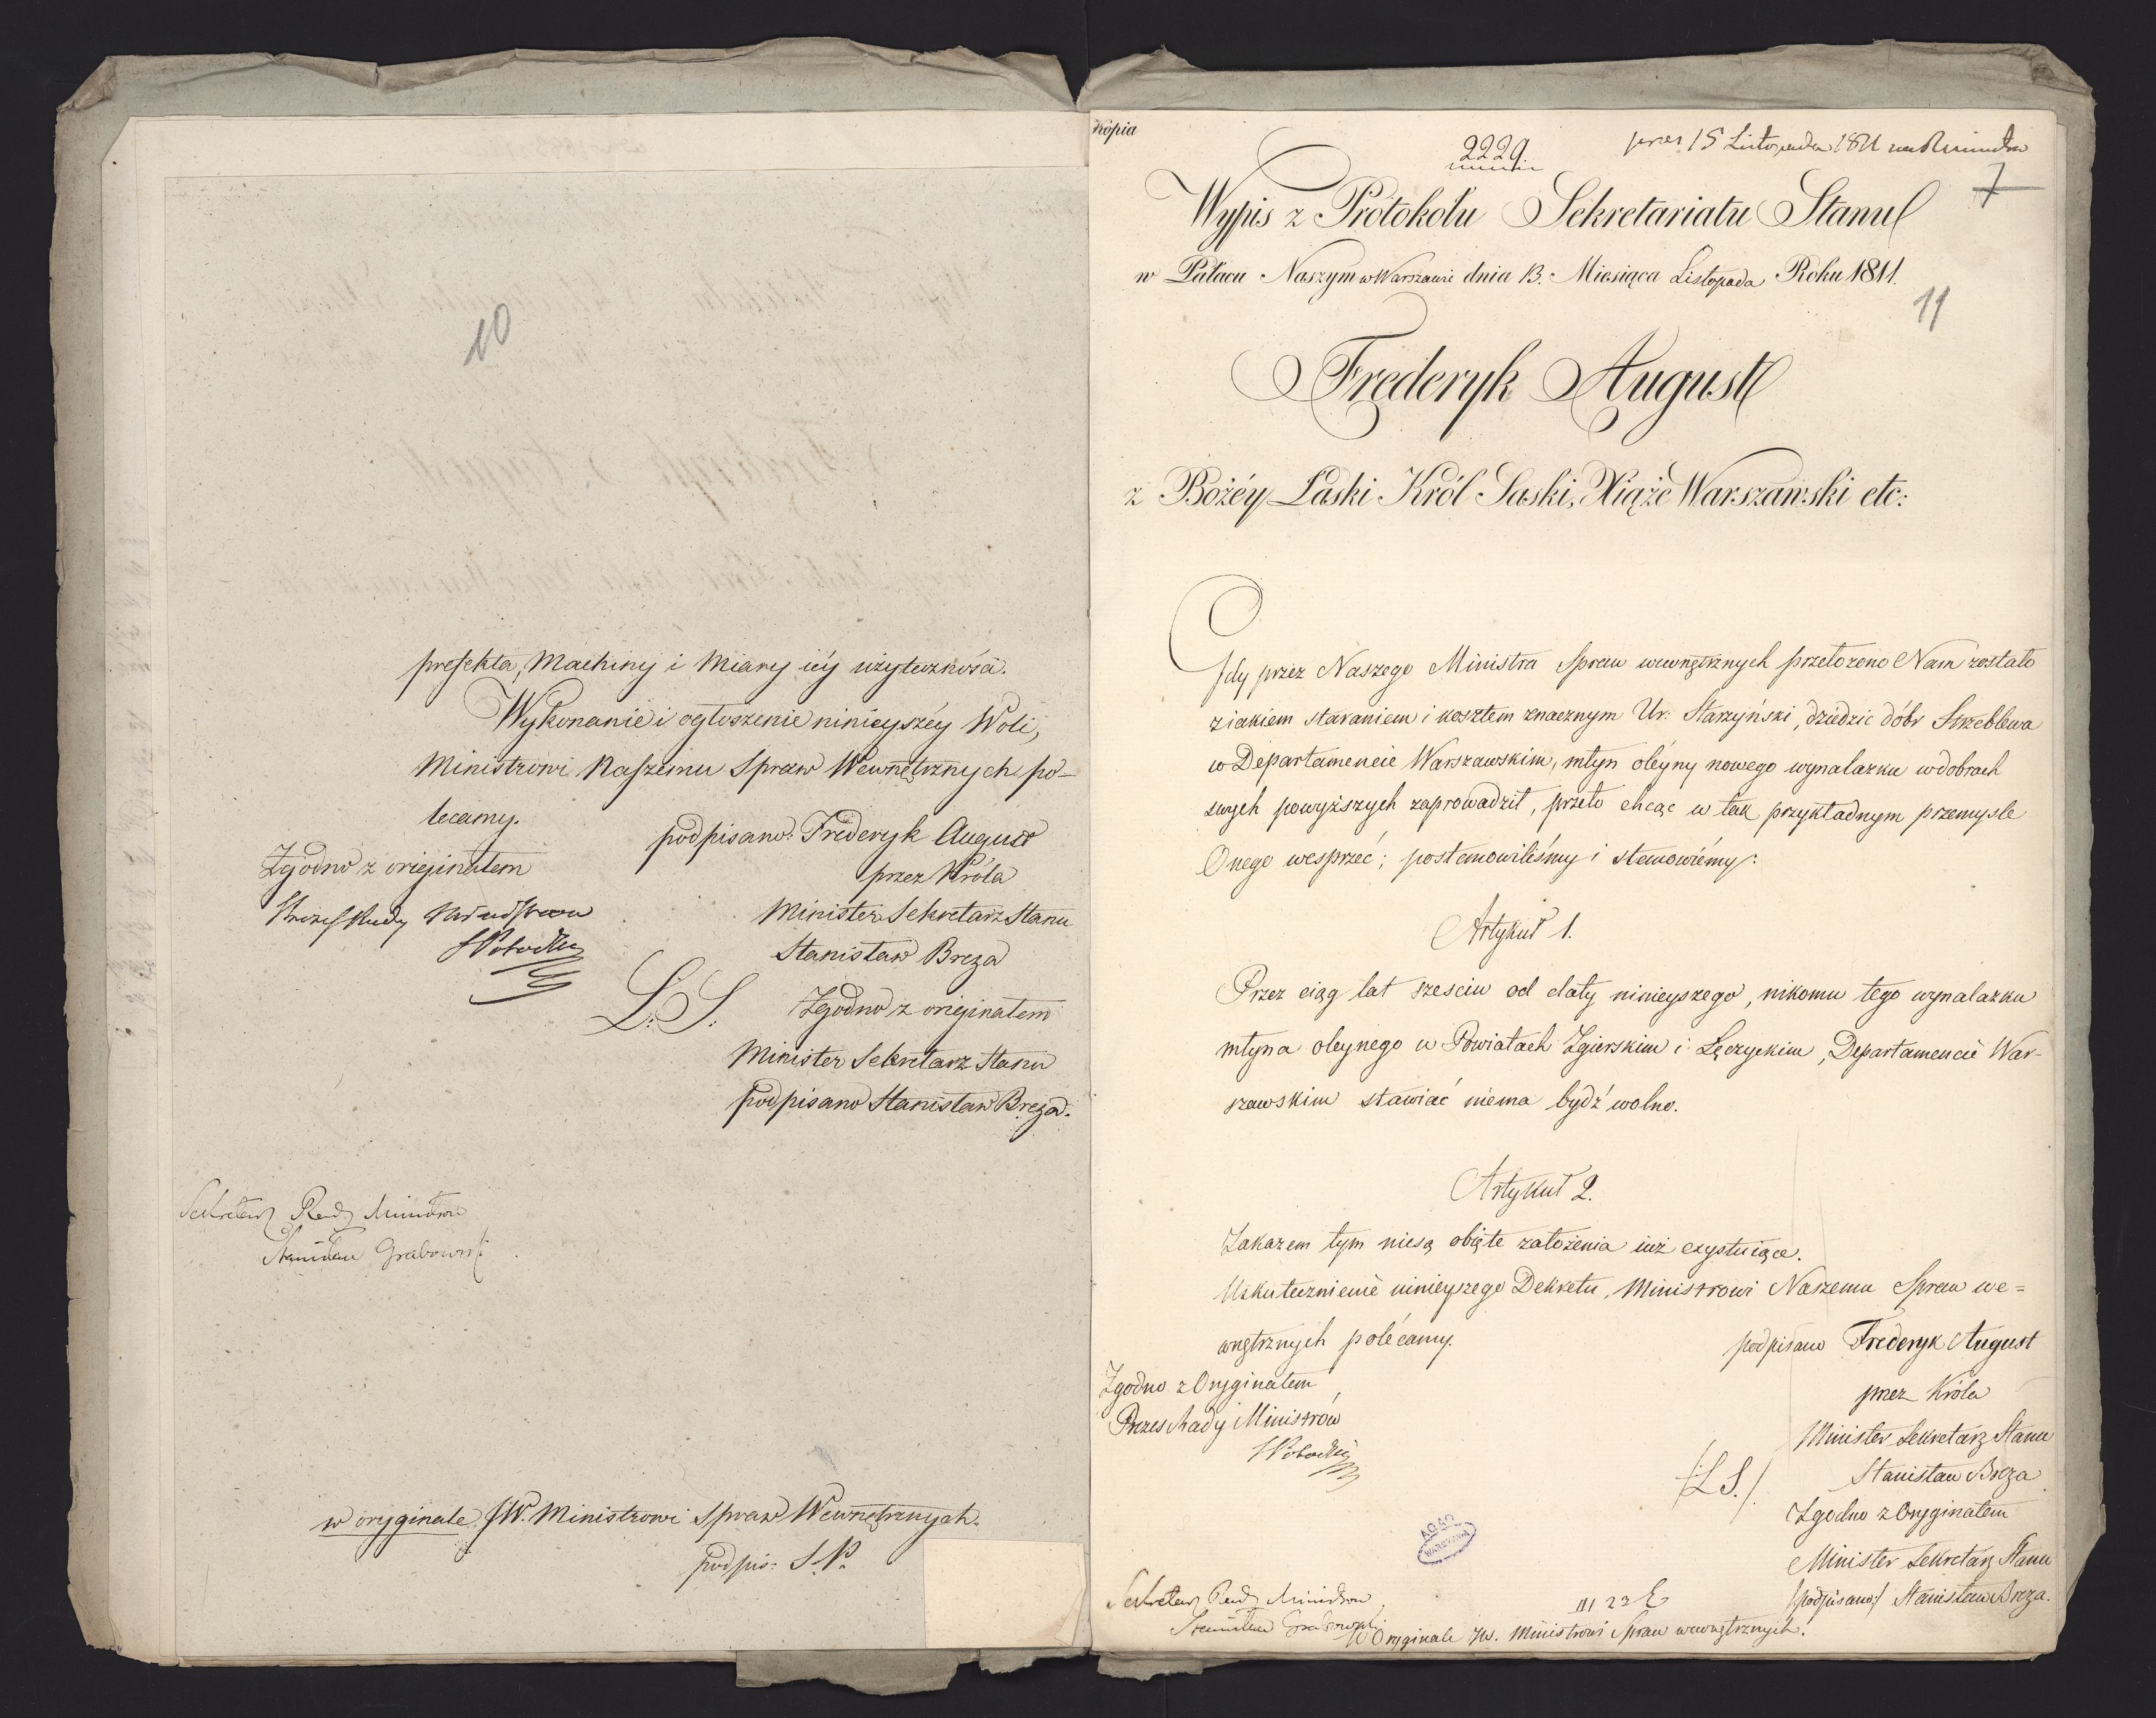 10
prefekta, Machiny i Miary iéy użyteczności.
Wykonanie i ogłoszenie ninieyszéy Woli,
Ministrowi Naszemu Spraw Wewnętrznych po-
lecamy.
podpisano: Frederyk August
Zgodno z orieginałem
przez Króla
Prezes Rady Ministrow
Minister Sekretarz Stanu
SPotocki
Stanisław Breza
L.S. Zgodno z orieginałem
Minister Sekretarz Stanu
podpisano Stanisław Breza.
Sekretarz Rady Ministrow
Stanisław Grabowski
w oryginale JW. Ministrowi Spraw Wewnętrznych.
podpis: S.P.
Kopia
2229.
15 Listopada 1811
7
Wypis z Protokołu Sekretariatu Stanu
w Pałacu Naszym w Warszawie dnia 13. Miesiąca Listopada Roku 1811.
11
Frederyk August
z Bożéy Łaski Król Saski, Xiąże Warszawski etc:
Gdy przez Naszego Ministra Spraw wewnętrznych przełożono Nam zostało
z iakiem staraniem i kosztem znacznym Ur: Starzyński, dziedzic dóbr Strzeblewa
w Departamencie Warszawskim, młyn oleyny nowego wynalazku w dobrach
swych powyższych zaprowadził, przeto chcąc w tak przykładnym przemysle
Onego wesprzeć; postanowiliśmy i stanowiémy:
Artykuł 1.
Przez ciąg lat szesciu od daty ninieyszego, nikomu tego wynalazku
młyna oleynego w Powiatach Zgierskim i Łęczyckim, Departamencie War-
szawskim stawiać niema bydź wolno.
Artykuł 2.
Zakazem tym niesą obięte założenia iuż exystuiące.
Uskutecznienie ninieyszego Dekretu, Ministrowi Naszemu Spraw we=
wnętrznych polécamy.
podpisano Frederyk August
Zgodno z Oryginałem
przez Króla
Prezes Rady Ministrów
Minister Sekretarz Stanu
SPotocki
/L.S./ Stanisław Breza
Zgodno z Oryginałem
Minister Sekretarz Stanu
/podpisano/ Stanisław Breza.
AGAD
WARSZAWA
Sekretarz Rady Ministrow
III 22
Stanisław Grabowski
W Oryginale JW. Ministrowi Spraw wewnętrznych.